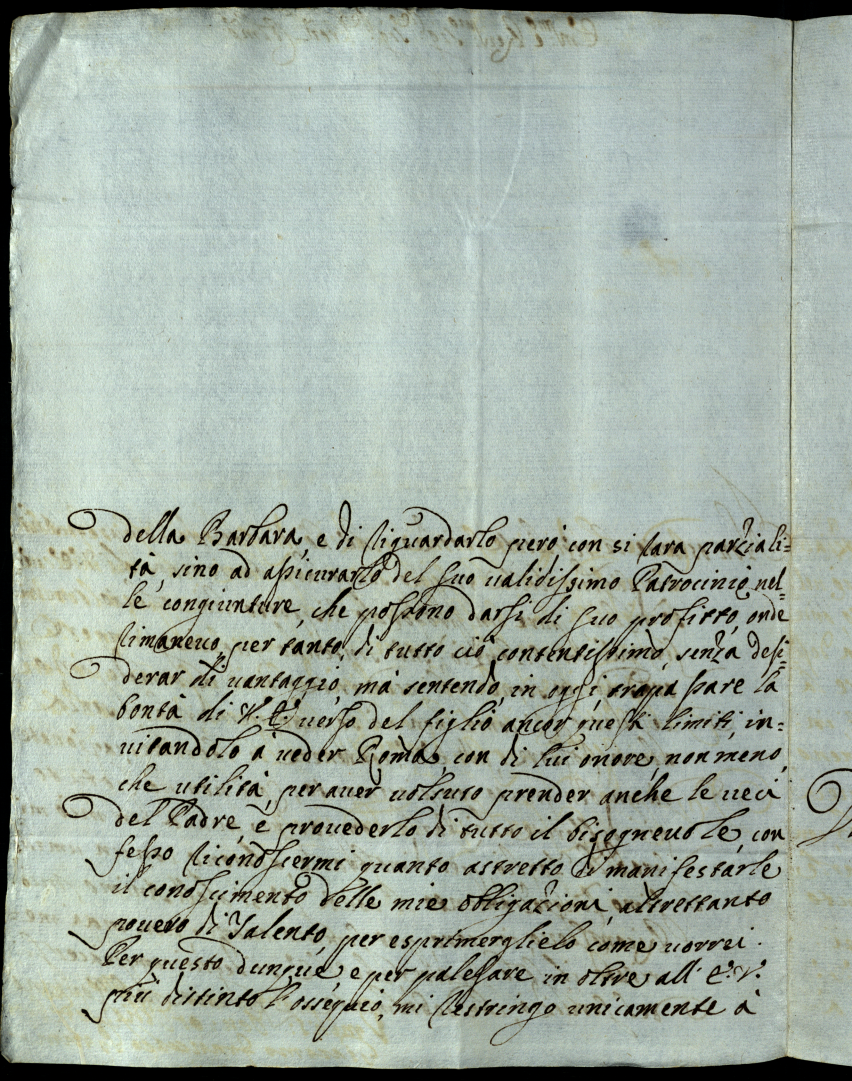 della Barbara, e di riguardarlo però con si rara parziali=
tà, sino ad assicurarlo del suo validissimo Patrocinio nel=
le congiunture, che possono darsi di suo profitto, onde
rimanevo, per tanto, di tutto ciò contentissimo, senza desi=
derar di vantaggio, mà sentendo, in oggi, trapassare la
bontà di V. E. verso del figlio ancor questi limiti, in=
vitandolo à veder Roma, con di lui onore, non meno,
che utilità, per aver voluto prender anche le veci
del Padre, e provederlo di tutto il bisognevole, con
fesso riconoscermi quanto astretto à manifestarle
il conoscimento delle mie obligazioni, altrettanto
povero di Talento, per esprimerglielo come vorrei.
Per questo dunque, e per palesare in oltre all' E. V.
più distinto l'ossequio, mi restringo unicamente à